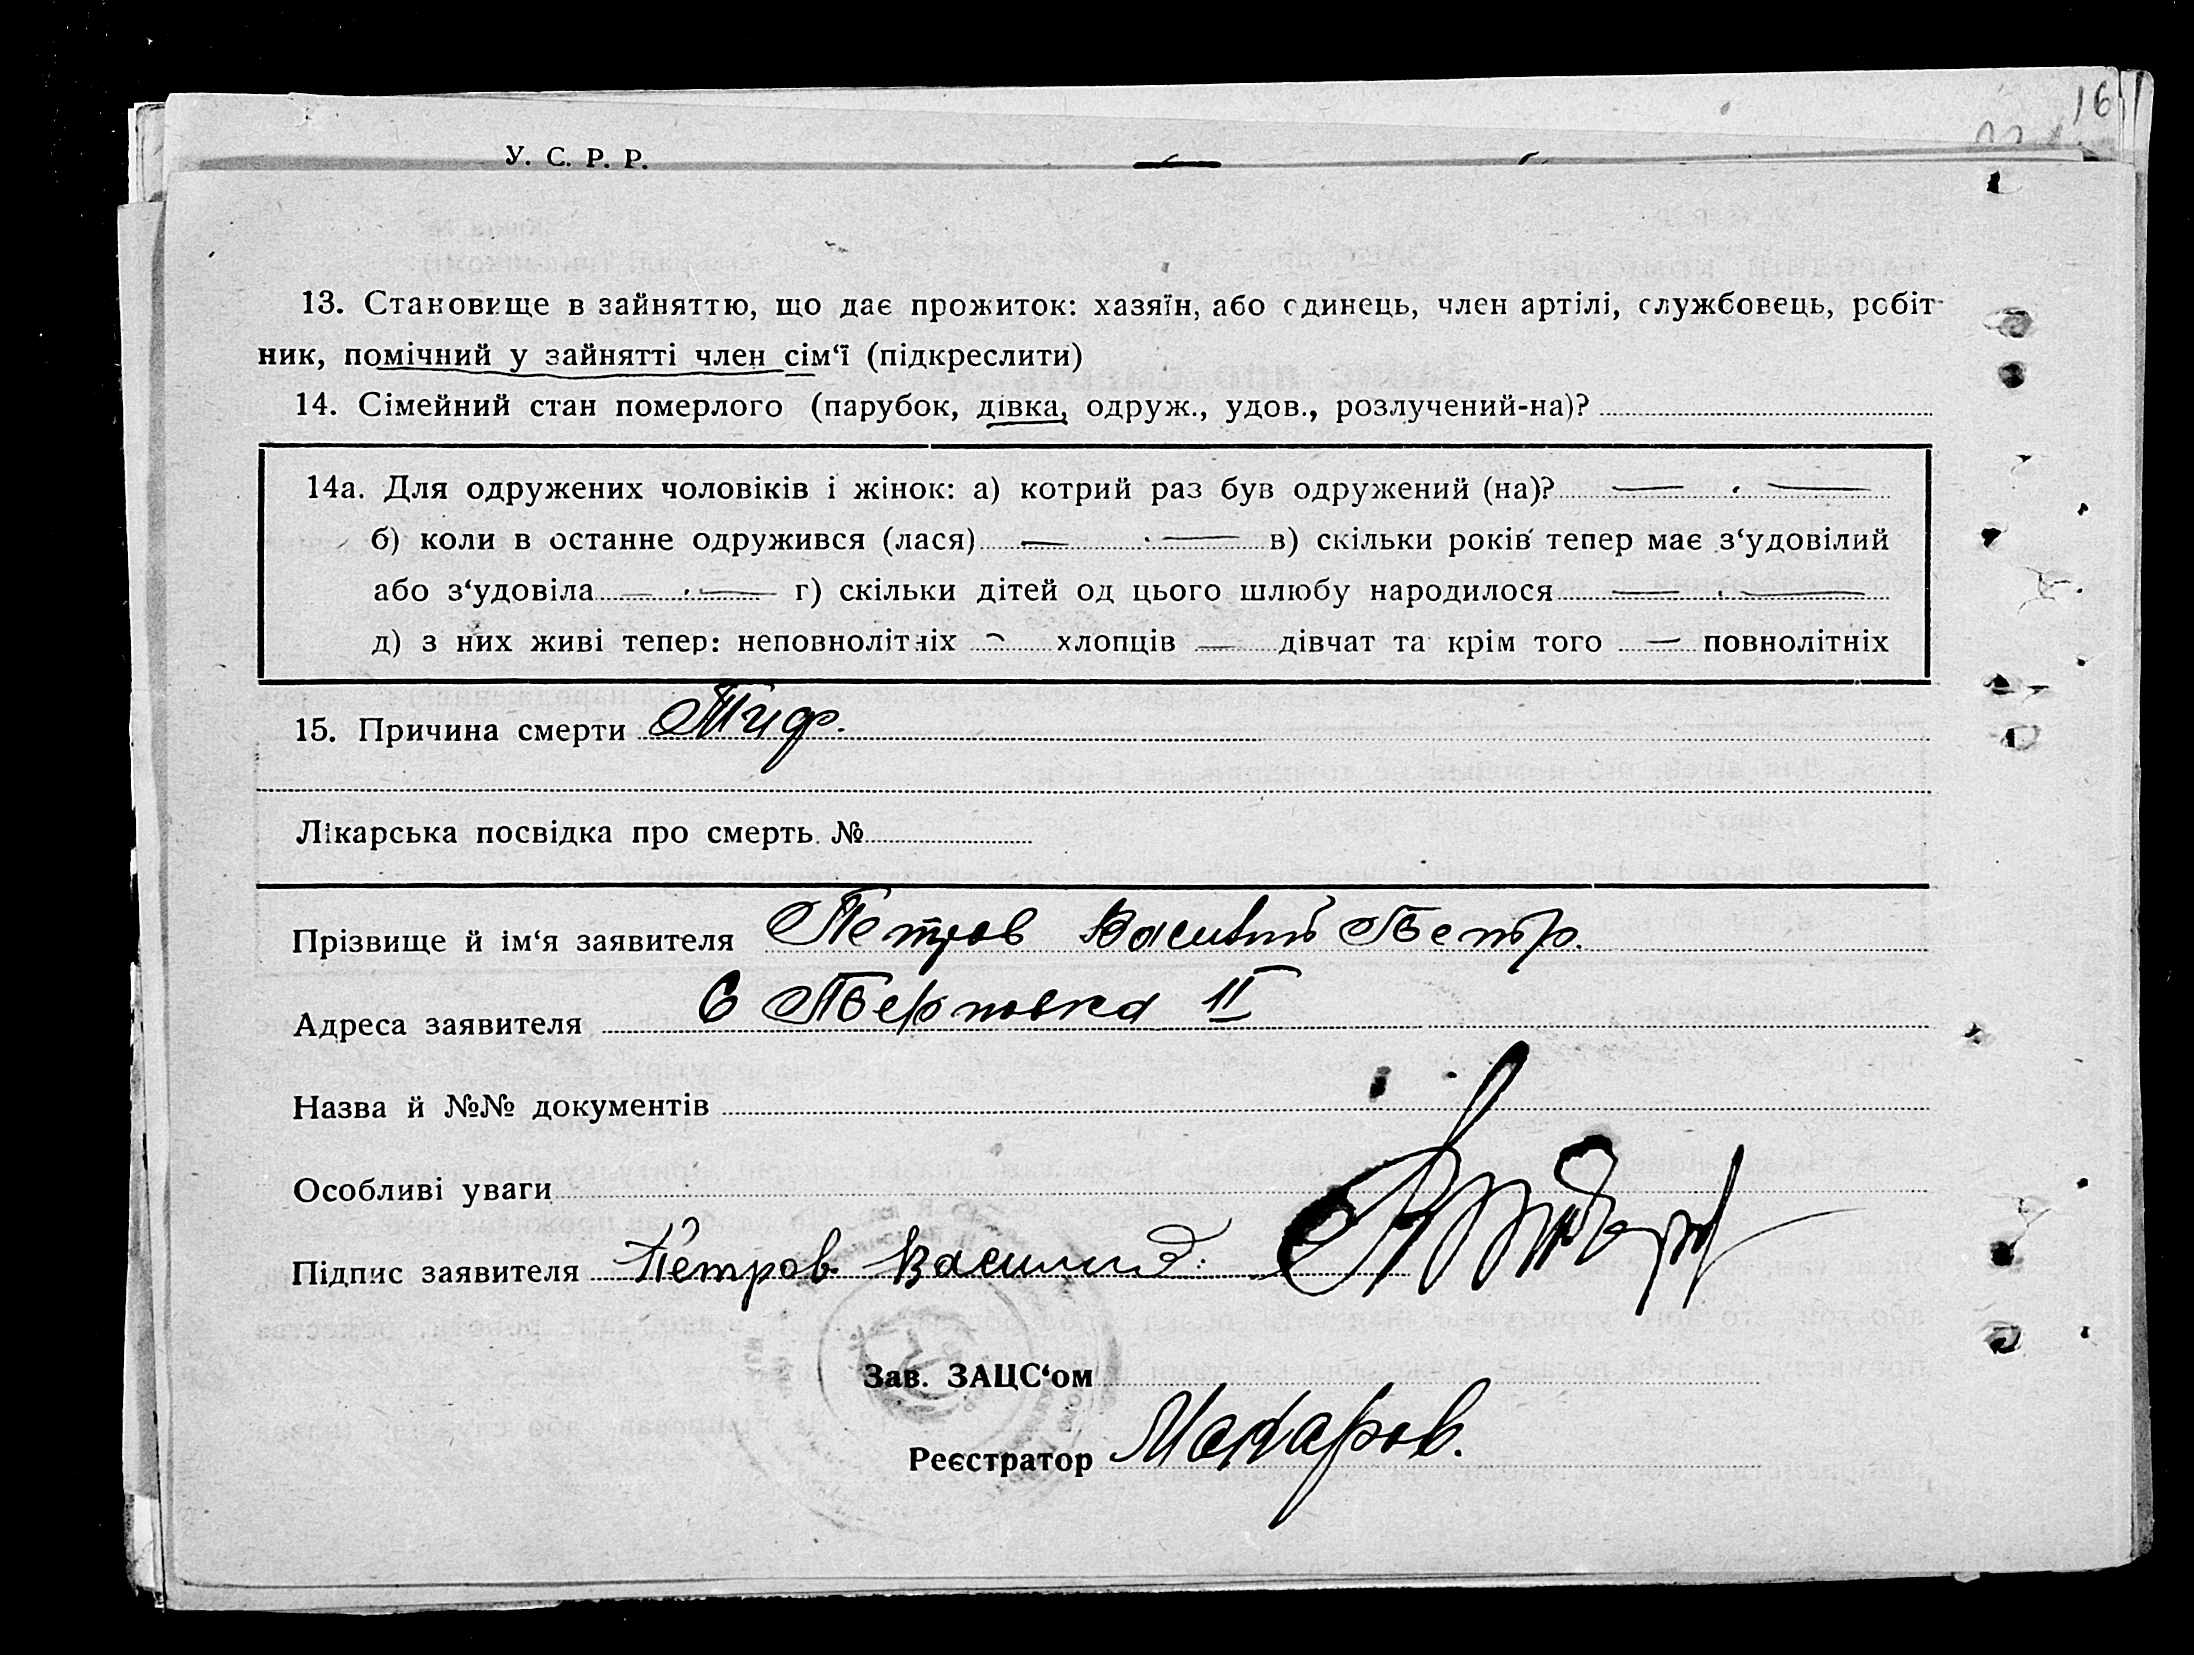 16
У. С. Р. Р.
13. Становище в зайняттю, що дає прожиток: хазяїн, або єдинець, член артілі, службовець, робіт-
ник, помічний у зайнятті член сім‘ї (підкреслити)
14. Сімейний стан померлого (парубок, дівка, одруж., удов., розлучений-на)?
14а. Для одружених чоловіків і жінок: а) котрий раз був одружений (на)? — . —
б) коли в останне одружився (лася) — . — в) скільки років тепер має з‘удовілий
або з‘удовіла — . — г) скільки дітей од цього шлюбу народилося — . —
д) з них живі тепер: неповнолітніх — хлопців — дівчат та крім того — повнолітніх
15. Причина смерти Тиф.
Лікарська посвідка про смерть №
Прізвище й ім‘я заявителя Петров Василий Петр.
Адреса заявителя С II
Назва й №№ документів
Особливі уваги
Підпис заявителя Петров Василий
Зав. ЗАЦС‘ом
Реєстратор Макаров.